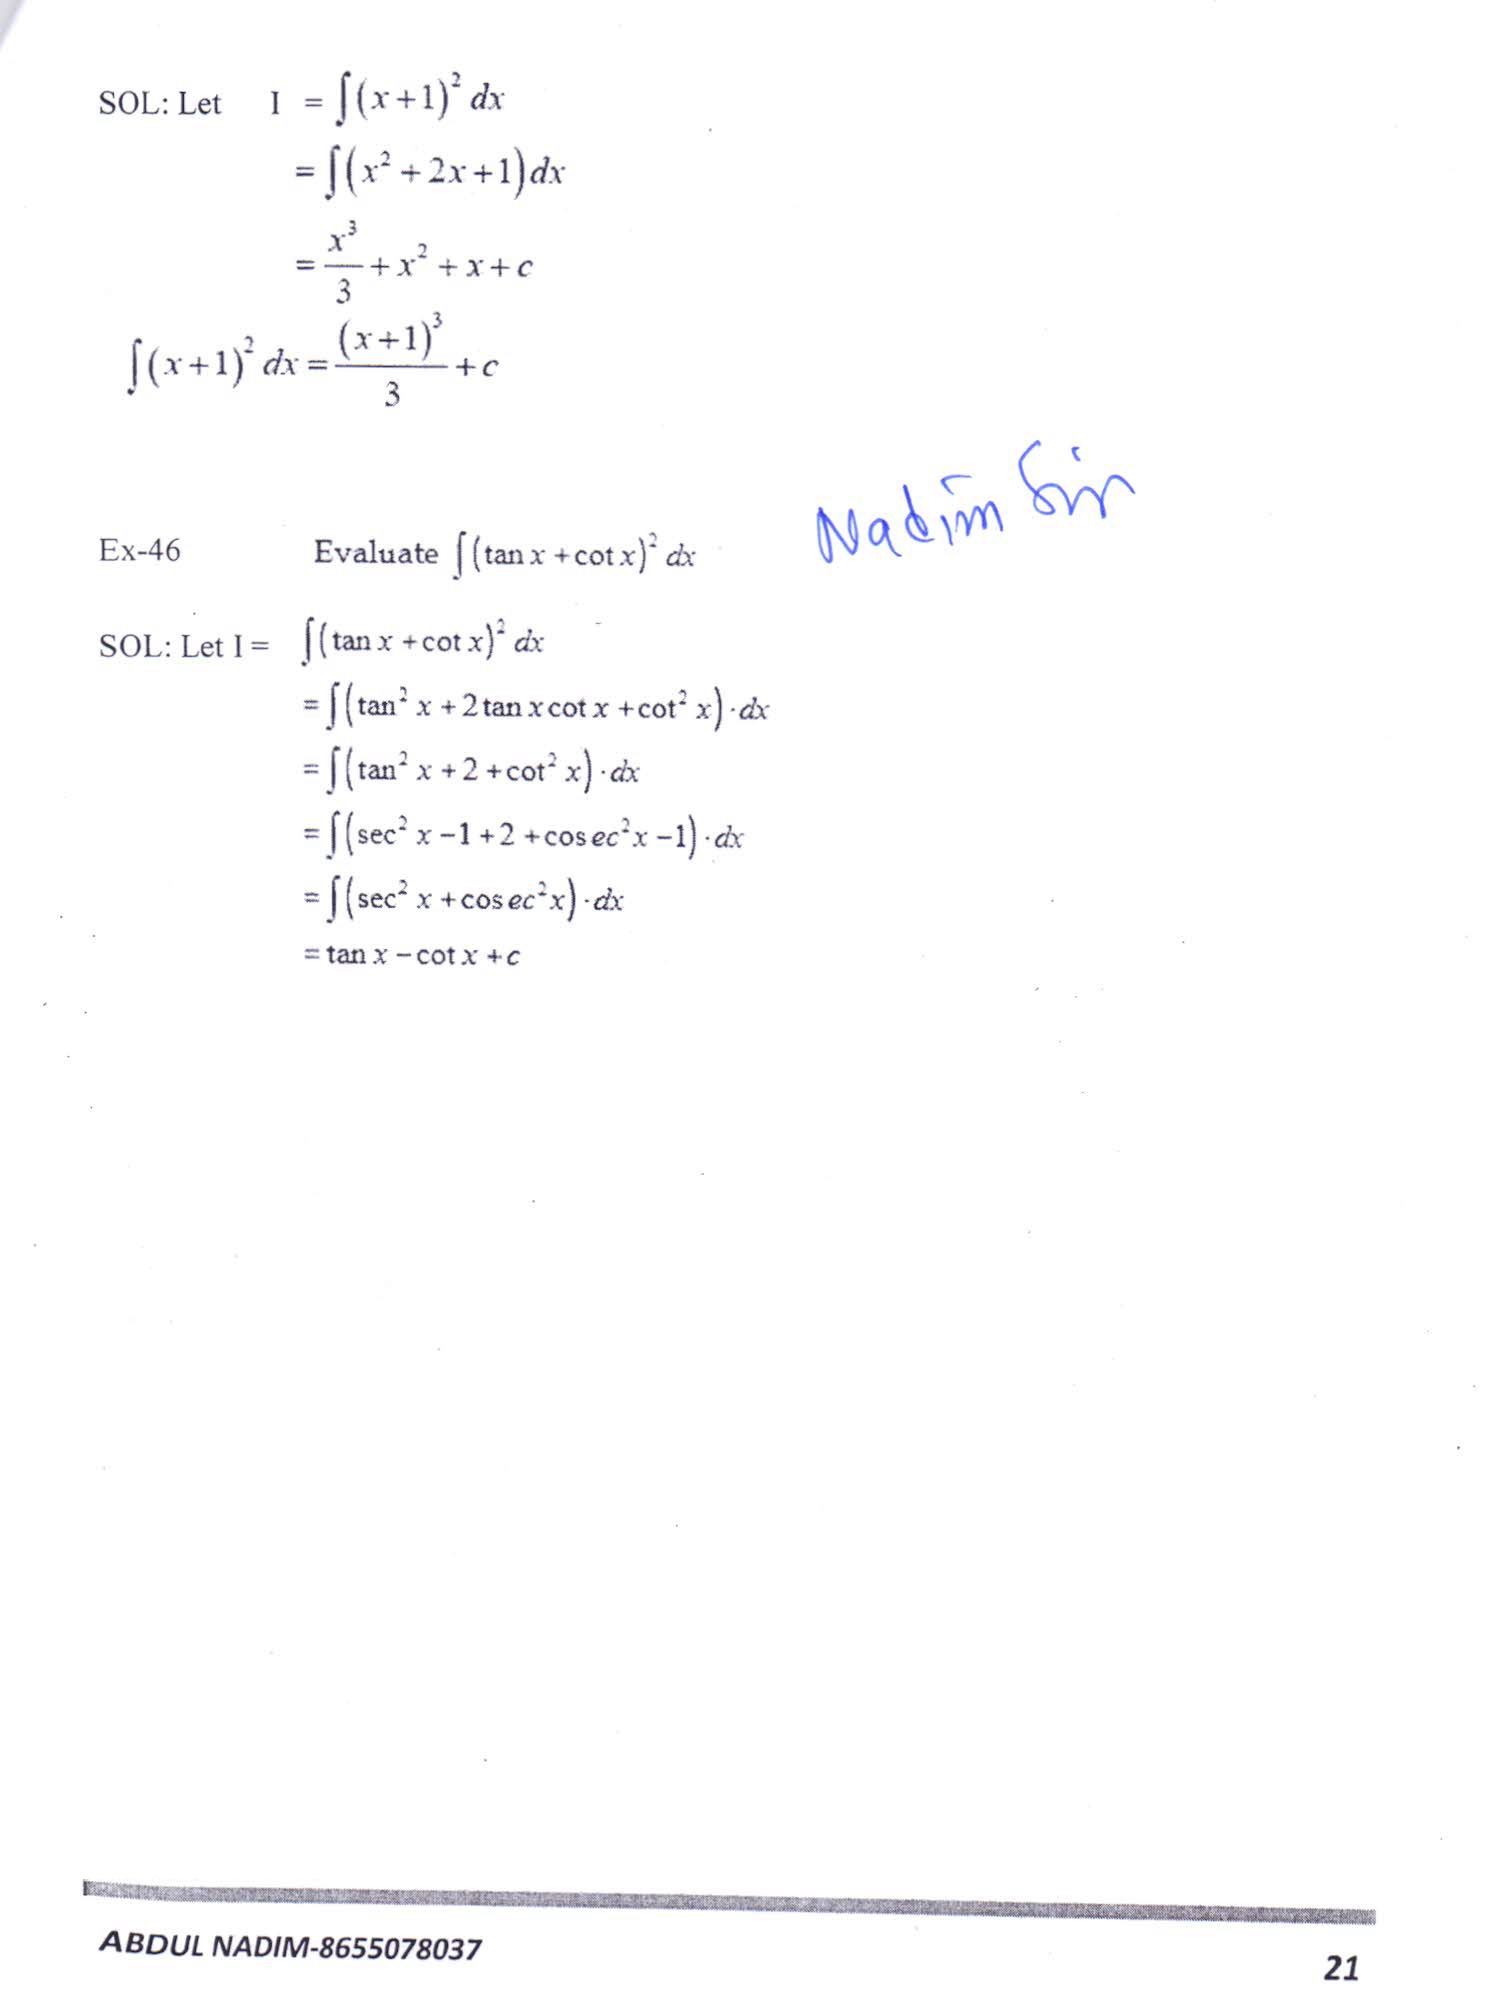 SOL: Let I = ∫(x+1)² dx
= ∫(x² + 2x + 1) dx
= x³/3 + x² + x + c
∫(x+1)² dx = (x+1)³/3 + c
Nadim Sir
Ex-46 Evaluate ∫(tan x + cot x)² dx
SOL: Let I = ∫(tan x + cot x)² dx
= ∫(tan² x + 2 tan x cot x + cot² x)·dx
= ∫(tan² x + 2 + cot² x)·dx
= ∫(sec² x − 1 + 2 + cosec²x − 1)·dx
= ∫(sec² x + cosec²x)·dx
= tan x − cot x + c
ABDUL NADIM-8655078037
21